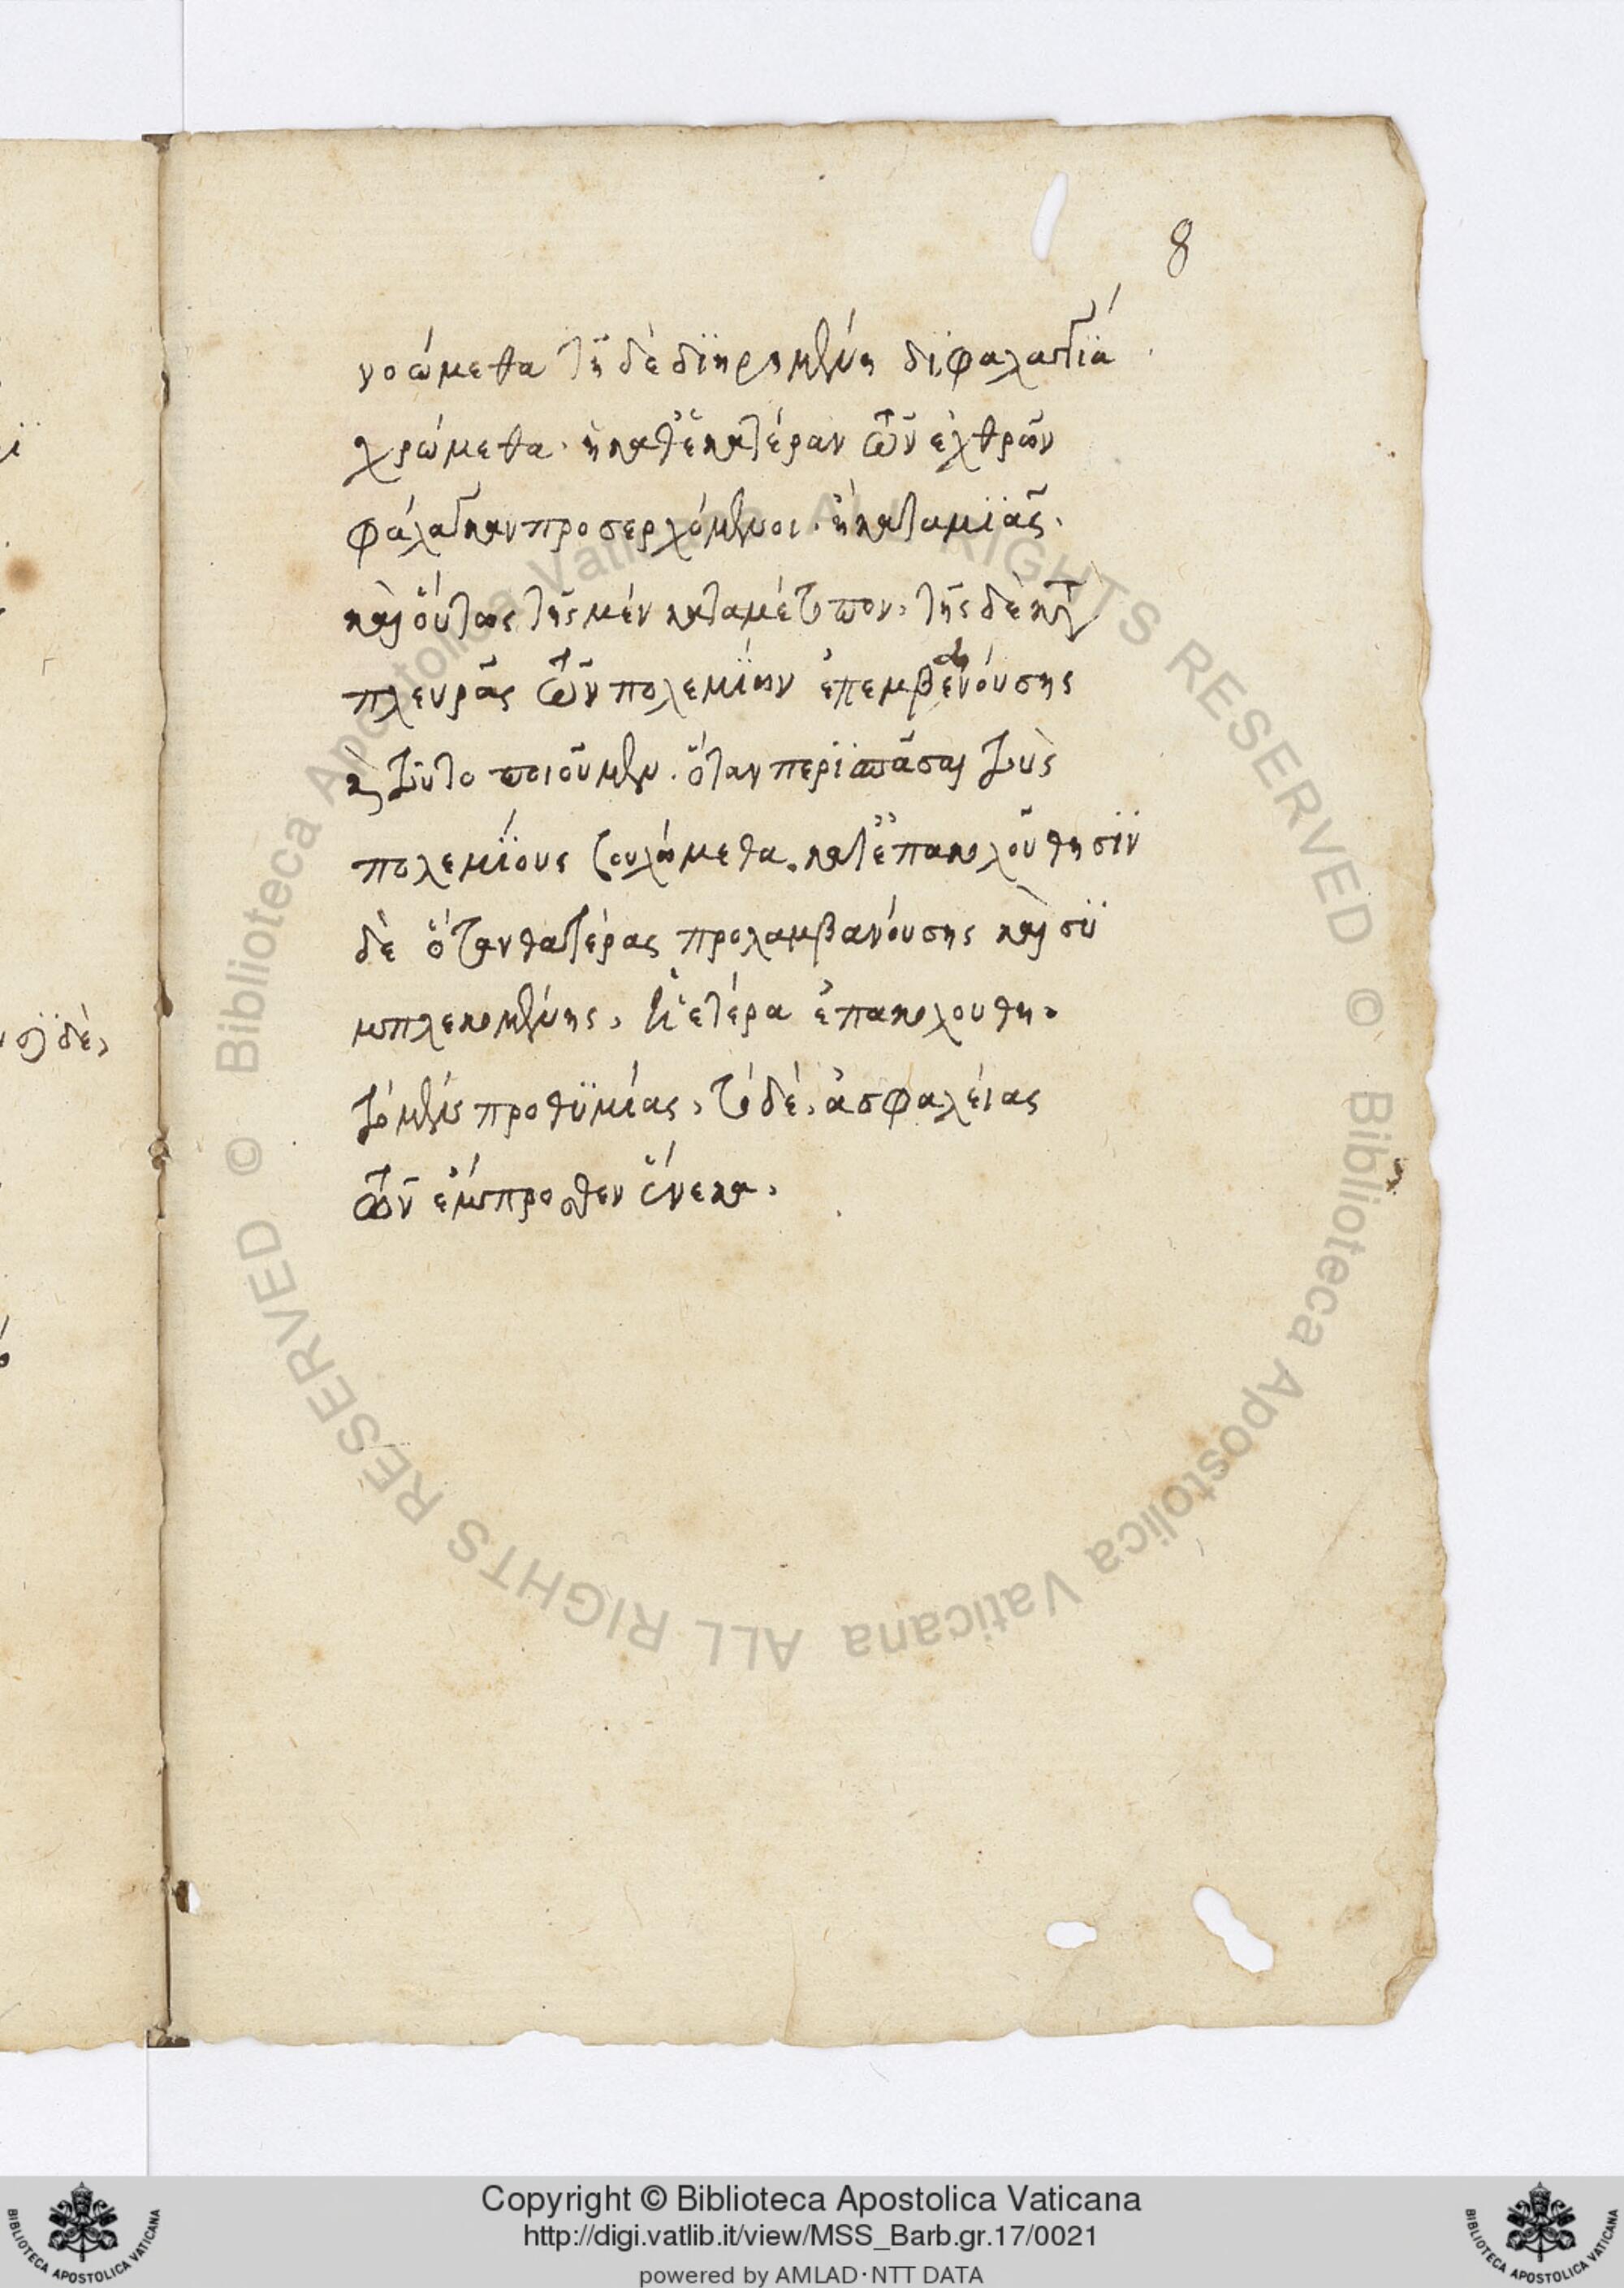 8
νοώμεθα τῆ δὲ διηρημένη διφαλαγγία
χρώμεθα· ἢ καθ ἑκατέραν τῶν ἐχθρῶν
φάλαγκαν προσερχόμενοι· ἢ κατα μιᾶς·
καὶ οὕτως τῆς μὲν κατα μέτωπον, τῆς δὲ κατὰ
πλευρᾶς τῶν πολεμίων ἐπεμβενούσης
αι
ἢ τοῦτο ποιοῦμεν· ὅταν περισπάσαι τοὺς
πολεμίους βουλώμεθα. κατ ἐπακολούθησιν
δὲ ὅταν θατέρας προλαμβανούσης καὶ συ
μπλεκομένης, ἡ ἑτέρα ἐπακολουθῆ·
τὸ μὲν προθυμίας, τὸ δὲ, ἀσφαλείας
τῶν ἔμπροσθεν ἕνεκα,
ν οὐ δὲ,
© Biblioteca Apostolica Vaticana ALL RIGHTS RESERVED © Biblioteca Apostolica Vaticana ALL RIGHTS RESERVED
Copyright © Biblioteca Apostolica Vaticana
http://digi.vatlib.it/view/MSS_Barb.gr.17/0021
powered by AMLAD·NTT DATA
BIBLIOTECA APOSTOLICA VATICANA
BIBLIOTECA APOSTOLICA VATICANA